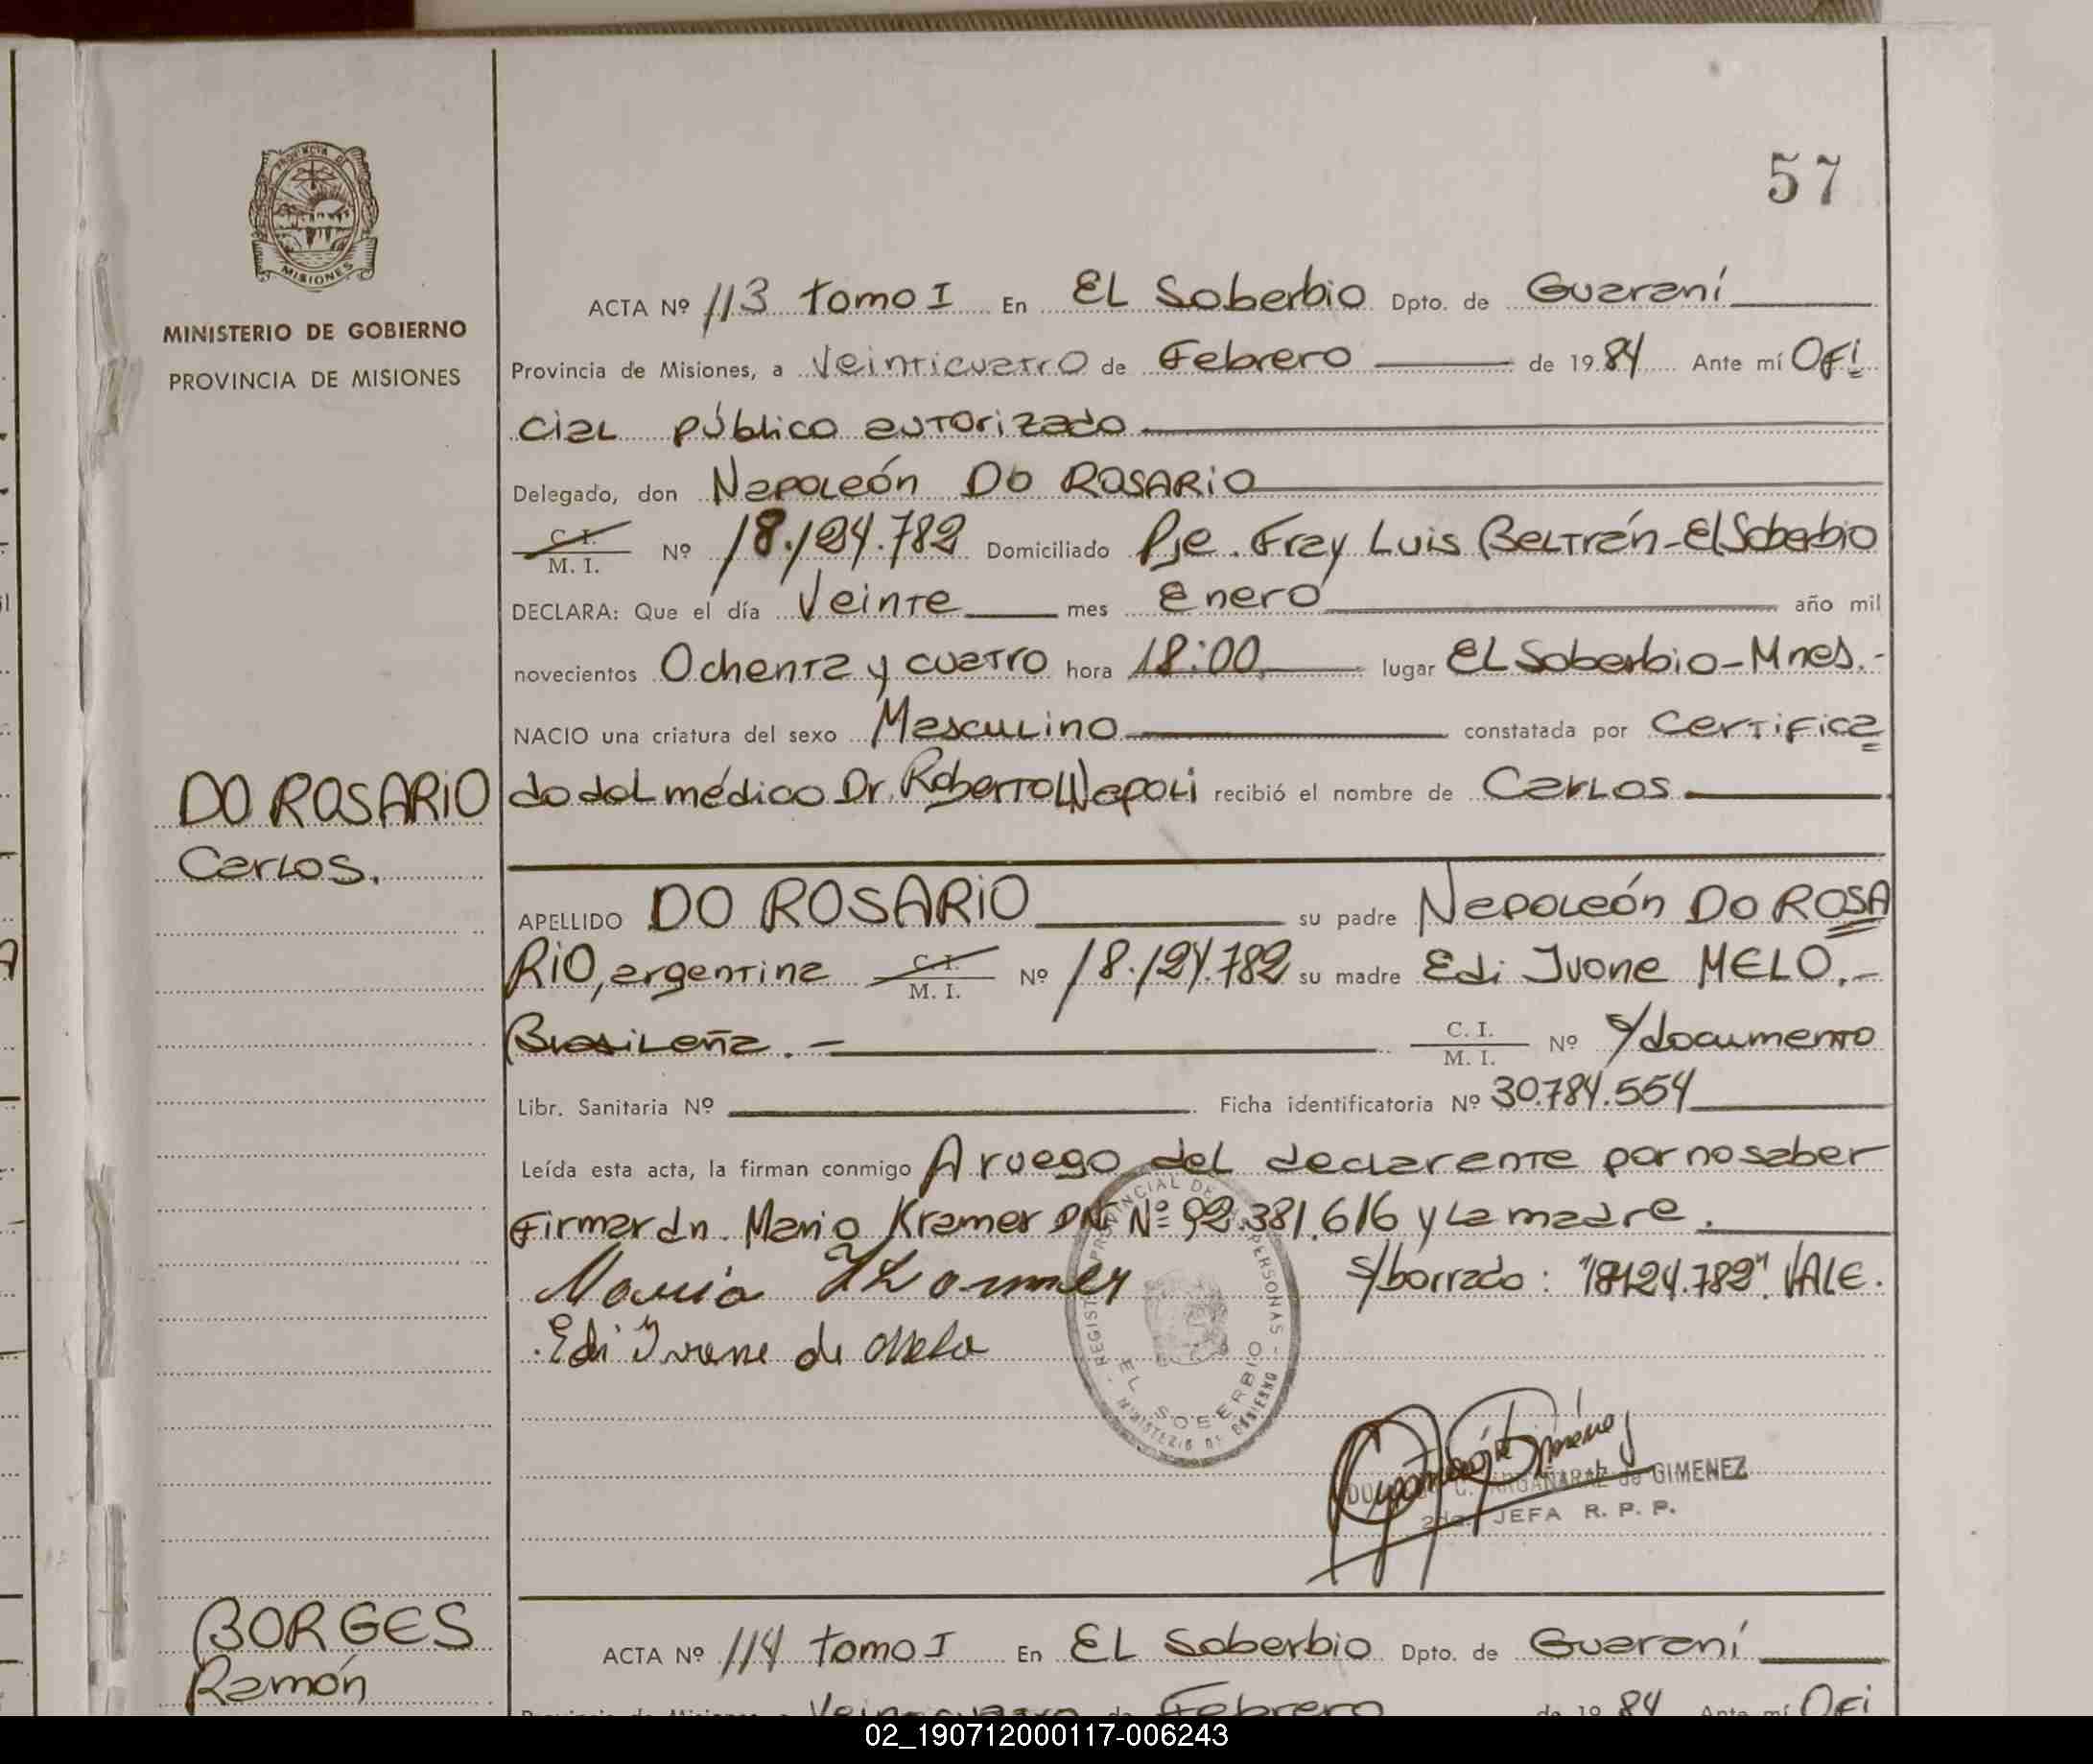 57
PROVINCIA DE
MISIONES
MINISTERIO DE GOBIERNO
PROVINCIA DE MISIONES
ACTA Nº 113 Tomo I En EL Soberbio Dpto. de Guaraní
Provincia de Misiones, a Veinticuatro de Febrero de 1984 Ante mí Ofi
cial público autorizado
Delegado, don Napoleón DO ROSARIO
C. I. / M. I. Nº 18.124.782 Domiciliado Pje. Fray Luis Beltrán - El Soberbio
DECLARA: Que el día Veinte mes Enero año mil
novecientos Ochenta y cuatro hora 18:00 lugar EL Soberbio - Mnes.-
NACIO una criatura del sexo Masculino constatada por Certifica
DO ROSARIO
do del médico Dr. Roberto Napoli recibió el nombre de Carlos
Carlos.
APELLIDO DO ROSARIO su padre Napoleón DO ROSA
RIO, argentina C. I. / M. I. Nº 18.124.782 su madre Edi Ivone MELO.-
Brasileña.- C. I. / M. I. Nº s/documento
Libr. Sanitaria Nº Ficha identificatoria Nº 30.784.554
Leída esta acta, la firman conmigo A ruego del declarante por no saber
firmar dn. Mario Kramer DNI Nº 92.381.616 y la madre.
s/borrado: "18124.782". VALE.
Edi Ivone de Melo
REGISTRO PROVINCIAL DE PERSONAS -
EL SOBERBIO
MINISTERIO DE GOBIERNO
ARGAÑARAZ de GIMENEZ
2da. JEFA R. P. P.
BORGES
Ramón
ACTA Nº 114 Tomo I En EL Soberbio Dpto. de Guaraní
Provincia de Misiones, a Veinticuatro de Febrero de 1984 Ante mí Ofi
02_190712000117-006243